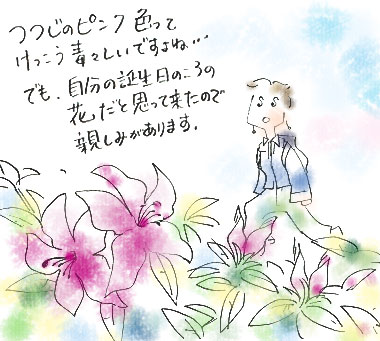 つつじのピンク色って
けっこう毒々しいですよね…
でも、自分の誕生日のころの
花だと思って来たので
親しみがあります.